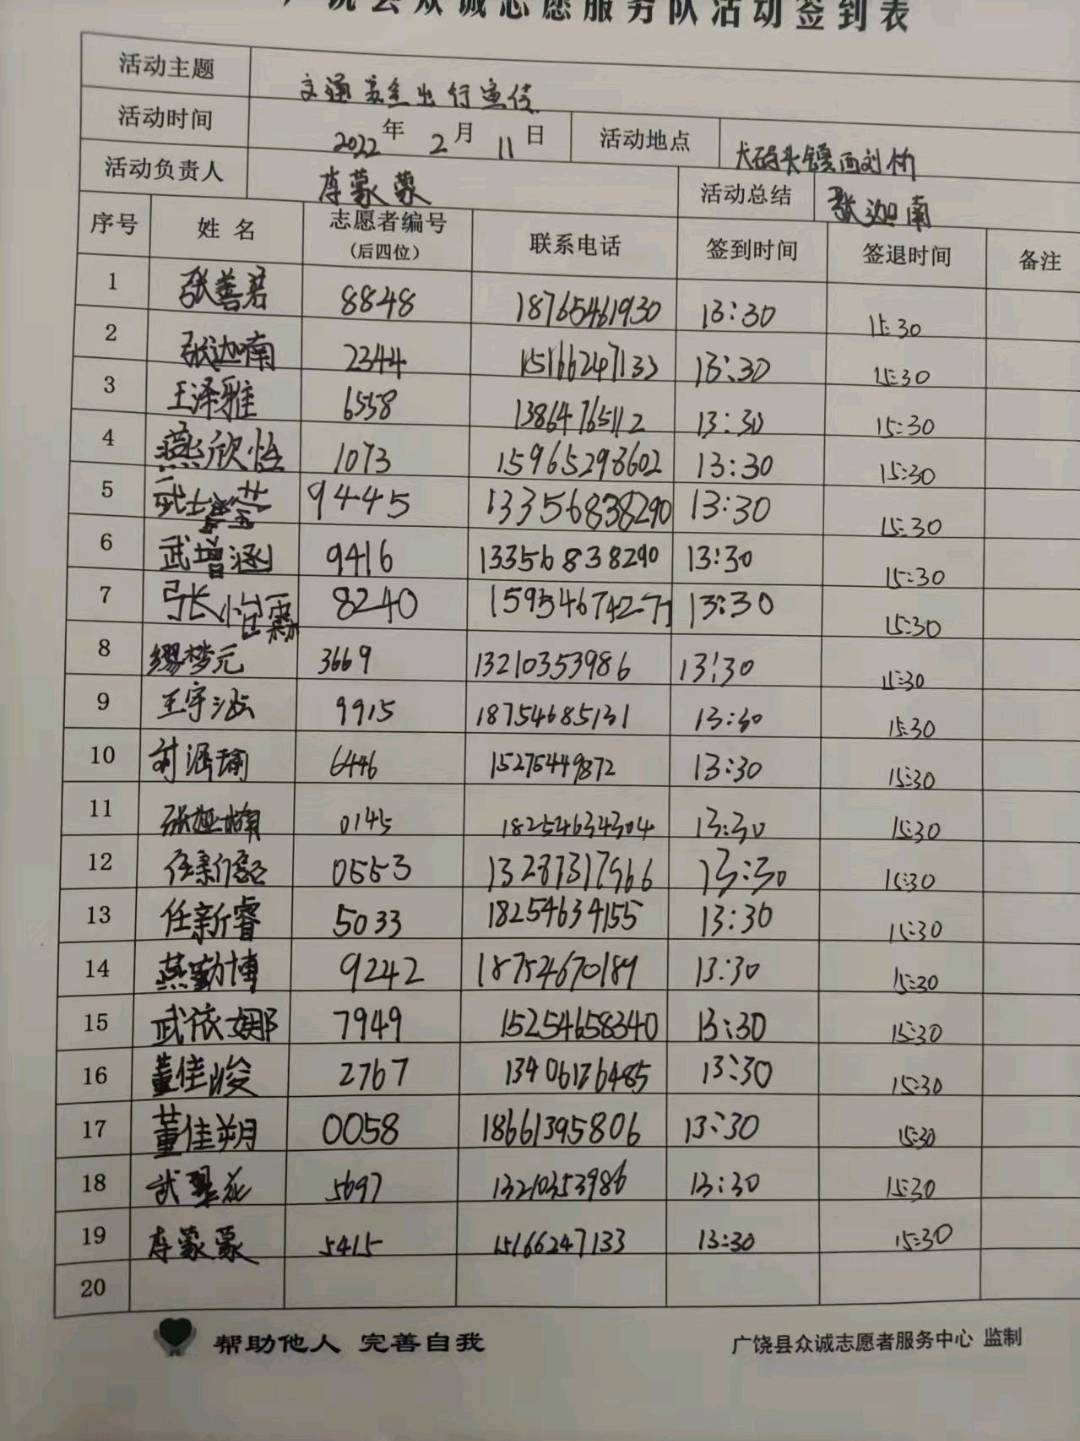 广饶县众诚志愿服务队活动签到表
活动主题 交通安全出行宣传
活动时间 2022年2月11日 活动地点 大码头镇西刘桥
活动负责人 李蒙蒙 活动总结 张迦南
序号 姓名 志愿者编号(后四位) 联系电话 签到时间 签退时间 备注
1 张善君 8848 18765461930 13:30 15:30
2 张迦喃 2344 15166247133 13:30 15:30
3 王泽雅 6558 13864765112 13:30 15:30
4 燕欣恬 1073 15965293602 13:30 15:30
5 武 9445 13356838290 13:30 15:30
6 武增涵 9416 13356838290 13:30 15:30
7 张怡霖 8240 15954674277 13:30 15:30
8 缪梦元 3669 13210353986 13:30 15:30
9 王宇涵 9915 18754685131 13:30 15:30
10 刘涵瑜 6446 15275449872 13:30 15:30
11 张 0145 18254634304 13:30 15:30
12 任新 0553 13287317566 13:30 15:30
13 任新睿 5033 18254634155 13:30 15:30
14 燕勤博 9242 18754670189 13:30 15:30
15 武依娜 7949 15254658340 13:30 15:30
16 董佳峻 2767 13406126485 13:30 15:30
17 董佳朔 0058 18661395806 13:30 15:30
18 武翠花 5697 13210353986 13:30 15:30
19 李蒙蒙 5415 15166247133 13:30 15:30
20
帮助他人 完善自我 广饶县众诚志愿者服务中心 监制